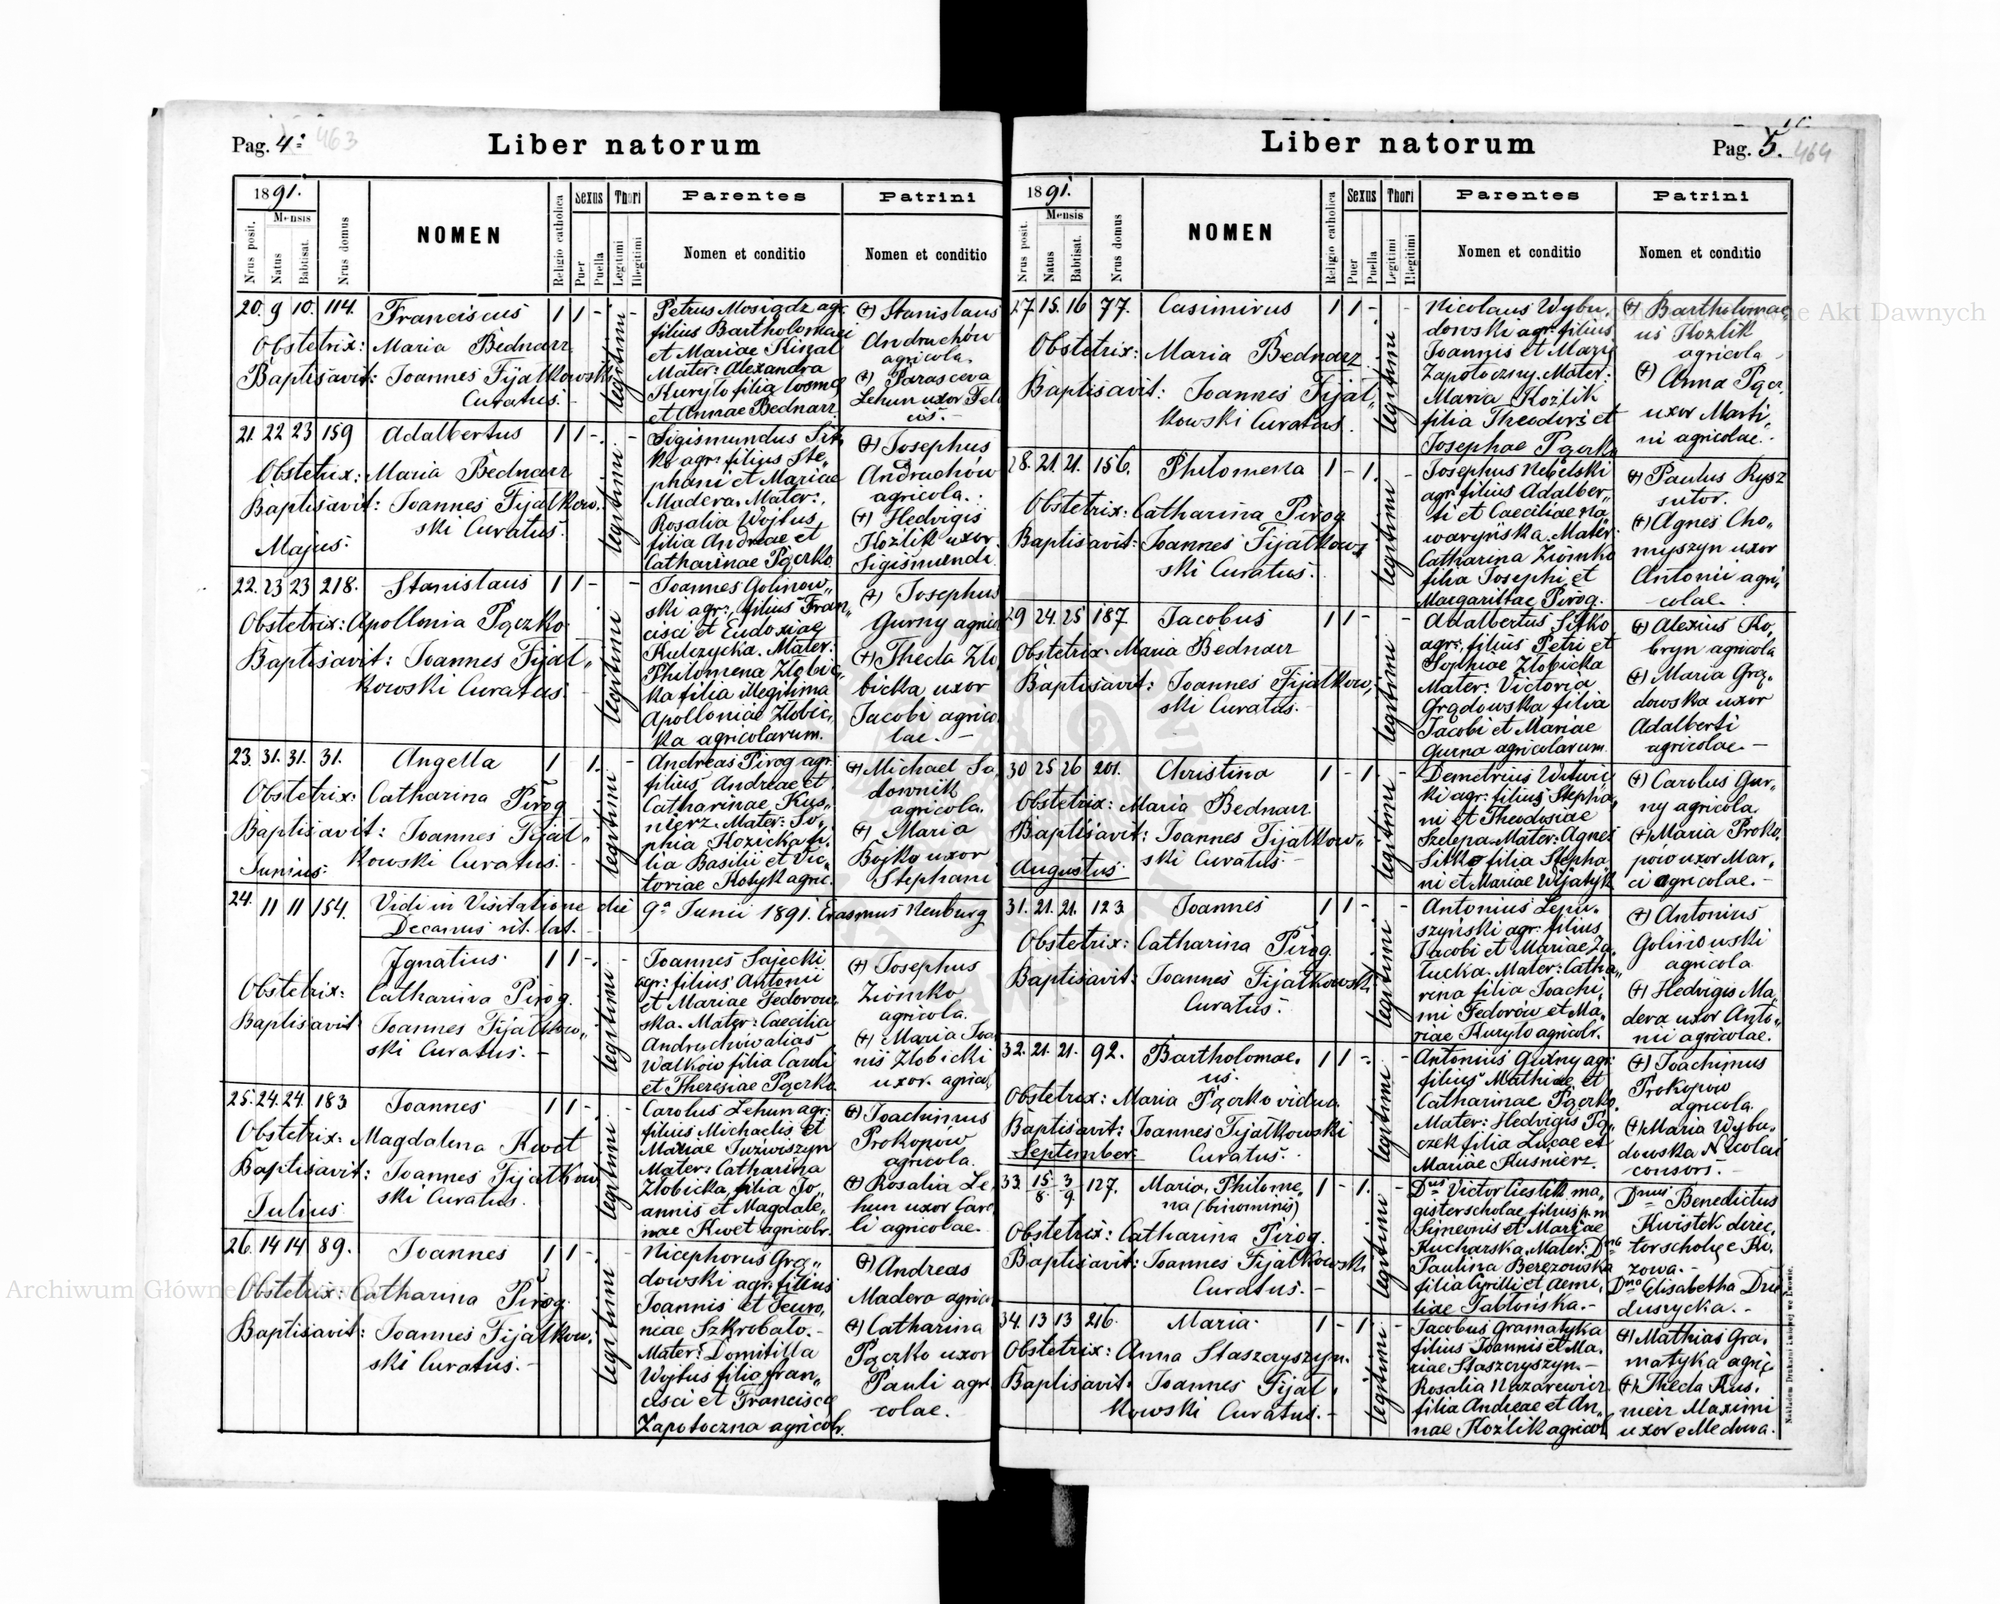 Pag. 4. 463
Liber natorum
1891.
Mensis
Nrus posit.
Natus
Babtisat.
Nrus domus
NOMEN
Religio catholica
Sexus
Puer
Puella
Thori
Legitimi
Illegitimi
Parentes
Nomen et conditio
Patrini
Nomen et conditio
20. 9 10. 114. Franciscus 1 1 - legitimi -
Obstetrix: Maria Bednarz
Baptisavit: Joannes Fijałkowski
Curatus. -
Petrus Mosiądz agr.
filius Bartholomaei
et Mariae Kinal
Mater: Alexandra
Kuryło filia Cosmę
et Annae Bednarz.
(+) Stanislaus
Andruchów
agricola.
(+) Parasceva
Lehun uxor Feli
cis. -
21. 22 23 159 Adalbertus 1 1 - legitimi -
Obstetrix: Maria Bednarz
Baptisavit: Joannes Fijałkow„
ski Curatus.
Majus.
Sigismundus Sit„
ko agr. filius Ste„
phani et Mariae
Madera. Mater:
Rosalia Wojtus
filia Andreae et
Catharinae Pączko.
(+) Josephus
Andruchów
agricola.
(+) Hedvigis
Kozlik uxor
Sigismundi.
22. 23 23 218. Stanislaus 1 1 - legitimi -
Obstetrix: Apollonia Pączko
Baptisavit: Joannes Fijał„
kowski Curatus. -
Joannes Golinow„
ski agr., filius Fran„
cisci et Eudoxiae
Kulczycka. Mater:
Philomena Złobic„
ka filia illegitima
Apolloniae Złobic„
ka agricolarum.
(+) Josephus
Gurny agrico
(+) Thecla Zło
bicka uxor
Jacobi agrico
lae. -
23. 31. 31. 31. Angella 1 1. legitimi -
Obstetrix: Catharina Pirog
Baptisavit: Joannes Fijał„
kowski Curatus. -
Junius:
Andreas Pirog agr.
filius Andreae et
Catharinae Kus„
nierz. Mater: So„
phia Kozicka fi„
lia Basilii et Vic„
toriae Kotyk agric.
(+) Michael Sa
downik
agricola.
(+) Maria
Bojko uxor
Stephani
24. 11 11 154. Vidi in Visitatione die 9ª Junii 1891. Erasmus Neuburg
Decanus rit. lat. -
Ignatius. 1 1 - legitimi -
Obstetrix: Catharina Pirog.
Baptisavit Joannes Fijałkow„
ski Curatus. -
Joannes Sajecki
agr. filius Antonii
et Mariae Fedorow„
ska. Mater: Caecilia
Andruchow alias
Walkow filia Caroli
et Theresiae Pączko
(+) Josephus
Ziomko
agricola.
(+) Maria Joa
nis Złobicki
uxor. agricol.
25. 24. 24. 183 Joannes 1 1 - legitimi -
Obstetrix: Magdalena Kwet
Baptisavit: Joannes Fijałkow
ski Curatus.
Julius:
Carolus Lehun agr:
filius Michaelis et
Mariae Juzwiszyn
Mater: Catharina
Złobicka filia Jo„
annis et Magdale„
nae Kwet agricolr.
(+) Joachimus
Prokopow
agricola.
(+) Rosalia Le
hun uxor Caro
li agricolae. -
26. 14 14 89. Joannes 1 1 - legitimi
Obstetrix: Catharina Pirog.
Baptisavit: Joannes Fijałkow.
ski Curatus. -
Nicephorus Grą„
dowski agr. filius
Joannis et Feuro„
niae Szkrobato. -
Mater: Domitilla
Wojtus filia Fran„
cisci et Franciscę
Zapotoczna agricolr.
(+) Andreas
Madera agrico
(+) Catharina
Pączko uxor
Pauli agri
colae. -
Pag. 5. 464
Liber natorum
1891.
Mensis
Nrus posit.
Natus
Babtisat.
Nrus domus
NOMEN
Religio catholica
Sexus
Puer
Puella
Thori
Legitimi
Illegitimi
Parentes
Nomen et conditio
Patrini
Nomen et conditio
27. 15. 16 77. Casimirus 1 1 - legitimi -
Obstetrix: Maria Bednarz
Baptisavit: Joannes Fijał„
kowski Curatus.
Nicolaus Wybu„
dowski agr. filius
Joannis et Marię
Zapotoczny. Mater:
Maria Kozlik
filia Theodori et
Josephae Pączko
(+) Bartholomae,
us Kozlik
agricola
(+) Anna Pącz„
uxor Marti„
ni agricolae. -
28. 21. 21. 156. Philomena 1 - 1. legitimi -
Obstetrix: Catharina Pirog
Baptisavit: Joannes Fijałkow„
ski Curatus. -
Josephus Nebelski
agr. filius Adalber„
ti et Caeciliae Na
waryńska. Mater:
Catharina Ziomko
filia Josephi et
Margaritae Pirog.
(+) Paulus Rysz
sutor.
(+) Agnes Cho„
myszyn uxor
Antonii agri„
colae.
29 24. 25 187 Jacobus 1 1 - legitimi -
Obstetrix. Maria Bednarz
Baptisavit: Joannes Fijałkow„
ski Curatus. -
Adalbertus Sitko
agr. filius Petri et
Sophiae Złobicka
Mater: Victoria
Grądowska filia
Jacobi et Mariae
Gurna agricolarum
(+) Alexius Ko„
bryn agricola
(+) Maria Grą„
dowska uxor
Adalberti
agricolae. -
30 25 26 201. Christina 1 - 1 legitimi -
Obstetrix: Maria Bednarz
Baptisavit: Joannes Fijałkow„
ski Curatus. -
Augustus:
Demetrius Witwic
ki agr. filius Stepha„
ni et Theodosiae
Szelepa. Mater: Agnes
Sitko filia Stepha
ni et Mariae Wijatyk
(+) Carolus Gur„
ny agricola
(+) Maria Proko„
pow uxor Mar„
ci agricolae. -
31. 21. 21. 123 Joannes 1 1 - legitimi -
Obstetrix: Catharina Pirog
Baptisavit: Joannes Fijałkowski
Curatus. -
Antonius Lepu„
szyński agr. filius
Jacobi et Mariae Za„
łucka. Mater: Catha„
rina filia Joachi„
mi Fedorów et Ma„
riae Kuryło agricolr.
(+) Antonius
Golinowski
agricola
(+) Hedvigis Ma„
dera uxor Anto„
nii agricolae.
32. 21. 21. 92. Bartholomae„ 1 1 - legitimi -
us.
Obstetrix: Maria Pączko vidua
Baptisavit: Joannes Fijałkowski
Curatus. -
September:
Antonius Gurny agr.
filius Mathiae et
Catharinae Pączko.
Mater: Hedvigis Pą„
czek filia Lucae et
Mariae Kusnierz.
(+) Joachimus
Prokopow
agricola
(+) Maria Wybu„
dowska Nicolai
consors. -
33. 15/8 3/9 127. Maria, Philome„ 1 - 1. legitimi -
na (binominis)
Obstetrix: Catharina Pirog.
Baptisavit: Joannes Fijałkowski
Curatus. -
Dnus Victor Cieslik ma„
gister scholae filius p.m
Simeonis et Mariae
Kucharska, Mater: Dna
Paulina Berezowska
filia Cyrilli et Aemi„
liae Jabłońska. -
Dnus Benedictus
Kwistek direc„
tor scholę e Ko„
zowa. -
Dna Elisabetha Dzie
duszycka. -
34. 13 13 216. Maria. 1 - 1 - legitimi
Obstetrix: Anna Staszczyszyn.
Baptisavit: Joannes Fijał„
kowski Curatus. -
Jacobus Gramatyka
filius Joannis et Ma„
riae Staszczyszyn. -
Rosalia Nazarewicz
filia Andreae et An„
nae Kozlik agricol
(+) Mathias Gra„
matyka agric
(+) Thecla Kus„
nierz Maximi
uxor e Medowa. -
Nakładem Drukarni Ludowej we Lwowie.
Archiwum Główne Akt Dawnych